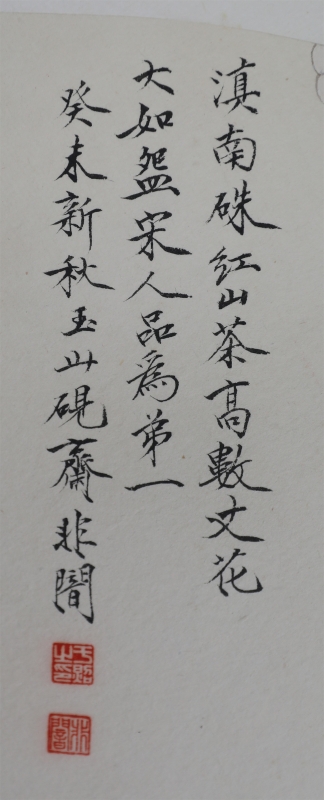 滇南硃红山茶高數丈花
大如盌宋人品爲第一
癸未新秋玉山硯齋非闇